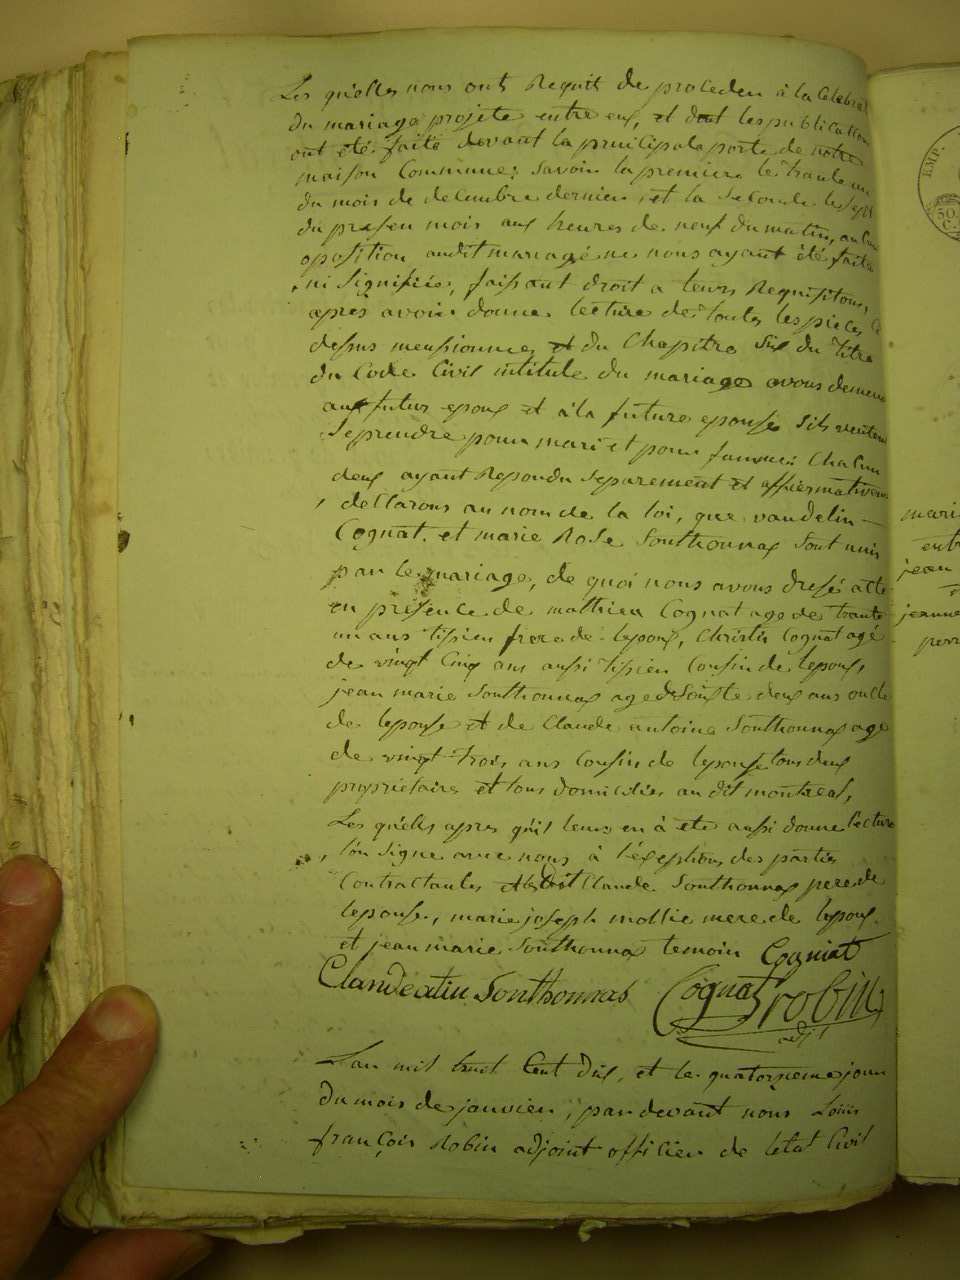 Les qu'elles nous ont Requit de proceder à la Celebrat
du mariage projeté entre eux, et dont les publications
ont été faite devant la principale porte de notre
maison Commune; Savoir la premiere le trante un
du mois de decembre dernier, et la Seconde le Sept
du presen mois aux heures de neuf du matin, aucune
oposition audit mariage ne nous ayant été faite
ni Signifiée, faisant droit a leurs Requisitons,
après avoir donner lecture de toutes les pieces Ci
dessus mensionnes et du Chapitre Six du Titre
du Code Civil intitule du mariage avons demen
aux futur epoux et à la future epouse Sils veulen
Se prendre pour mari et pour famme: Chacun
deux ayant Repondu Separement et affirmativem
, declarons au nom de la loi, que vandelin
Cognat. et marie Rose Southonnax Sont unis
par le mariage, de quoi nous avons dresé acte
en présence de mathieu Cognat age de trante
un ans tisien frere de lepoux, Christin Cognat agé
de vingt Cinq ans aussi tisien Cousin de lepoux,
jean marie Southonnax age de Soixte deux ans oncle
de lepouse et de Claude antoine Southonnax age
de vingt trois ans Cousin de lepouse tous deux
propriétaires et tous domiciliés au dit montreal,
Les qu'elles apres qu'il leurs en à ete aussi donne lecture
, lon Signe avec nous à l'exeption des partis
Contractantes et Claude Southonnax pere de
lepouse, marie joseph mollie mere de lepoux
et jean marie Southonnax temoin Cogniat
Claude atin Sonthonnas Cognat Robin
adjt
L'an mil huit Cent dix, et le quatorzieme jour
du mois de janvier, par devant nous Louis
françois Robin adjoint officier de letat Civil
EMP.
50.
C.
mari
entr
jean
jeanne
perr